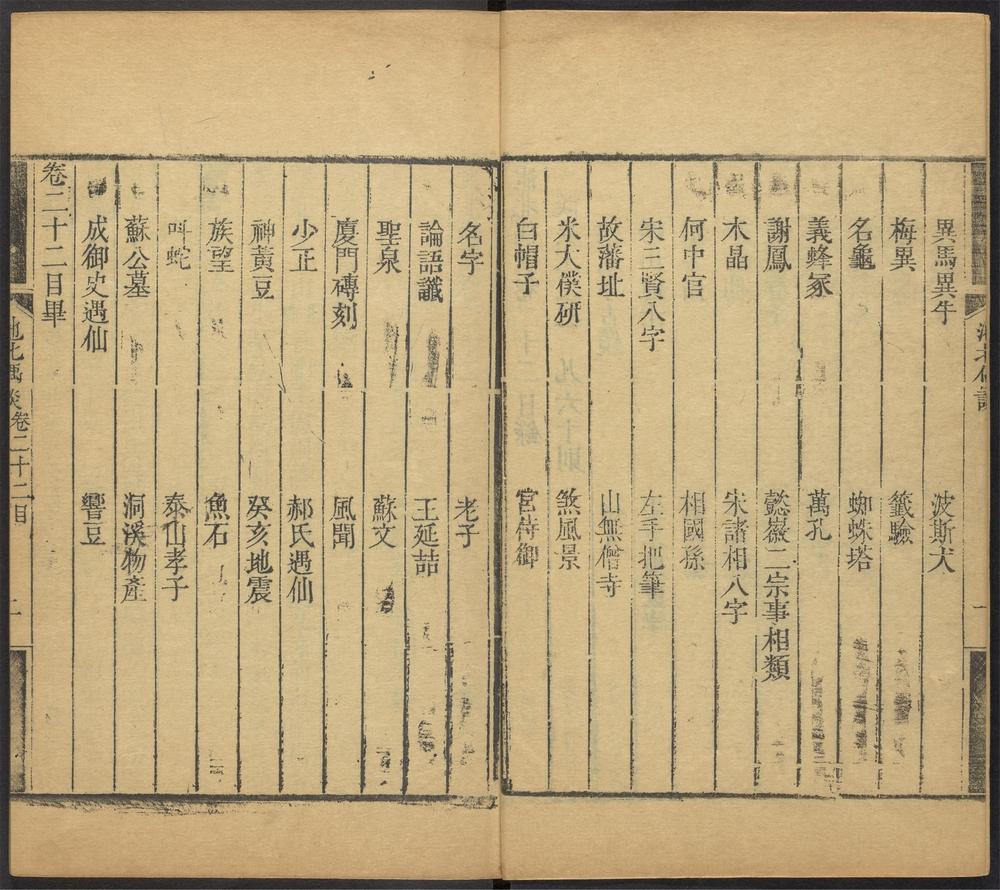 異馬異牛　波斯犬
梅異　籤驗
名龜　蜘蛛塔
義蜂冢　萬孔
謝鳳　懿嶽二宗事相類
木晶　宋諸相八字
何中官　相國孫
宋三賢八字　左手把筆
故藩址　山無僧寺
米大僕研　煞風景
白帽子　宮待御
名字　老子
論語讖　王延喆
聖泉　蘇文
廈門磚刻　風聞
少正　郝氏遇仙
神黃豆　癸亥地震
族望　魚石
叫蛇　泰山孝子
蘇公墓　洞溪物產
成御史遇仙　響豆
卷二十二目畢
池北偶談卷二十二目　二